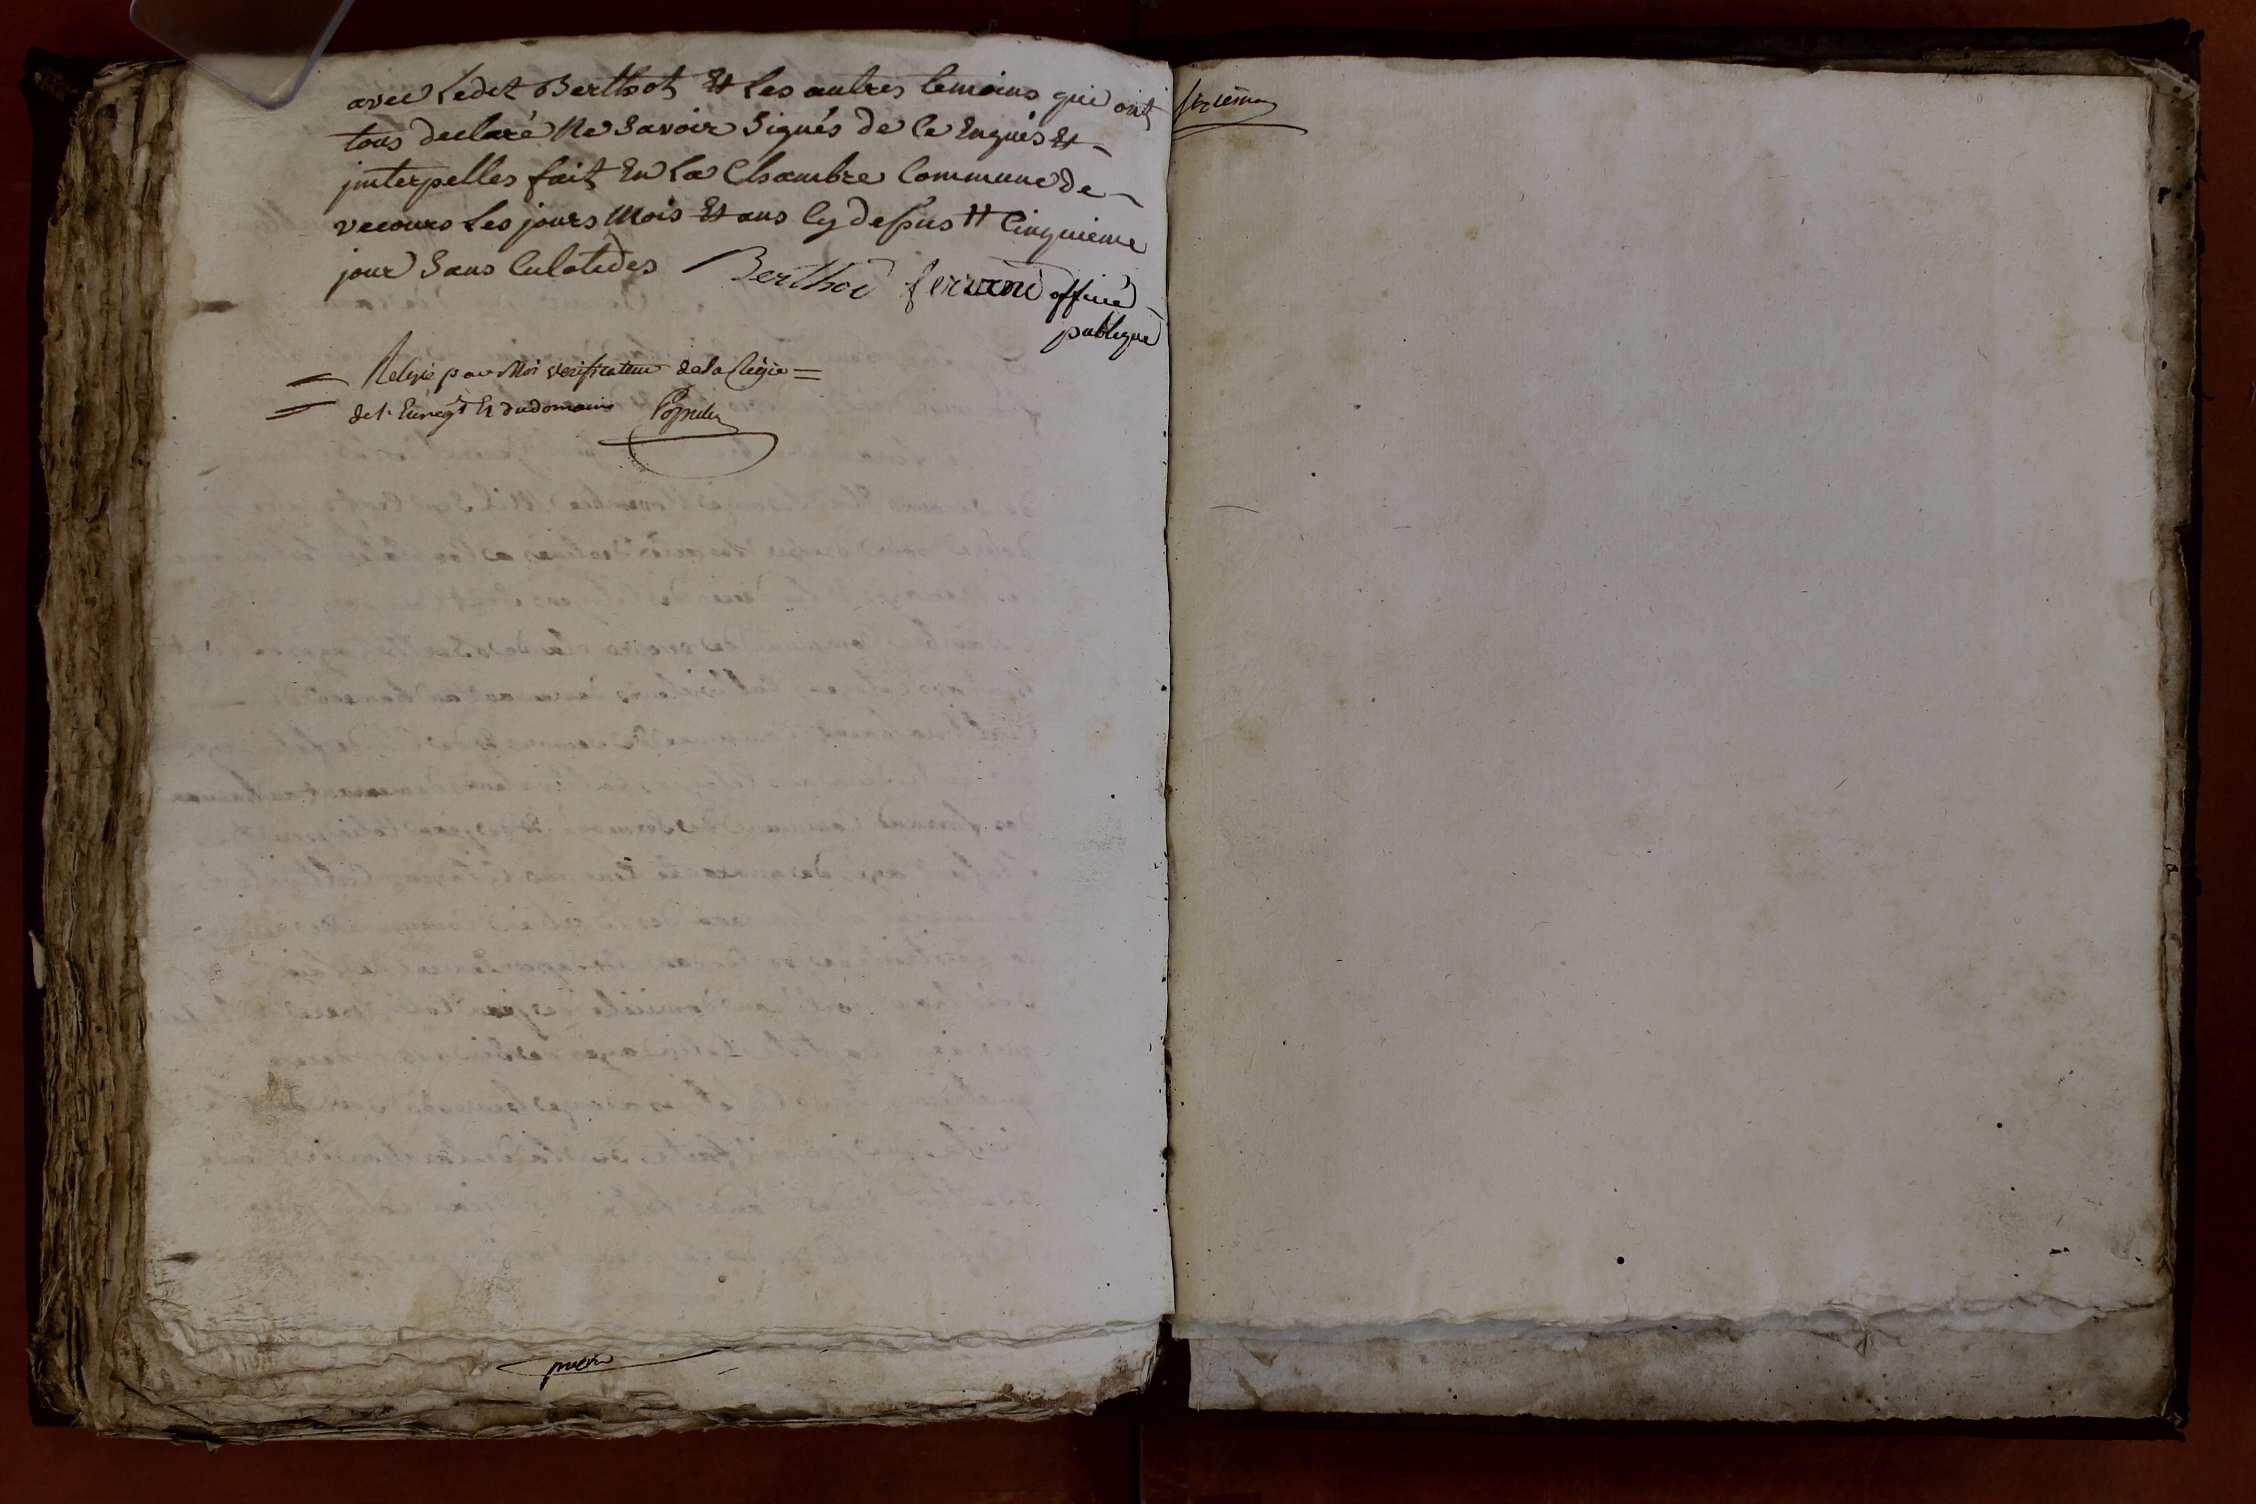 avec Ledit Berthot Et Les autres temoins qui ont
tous declaré Ne Savoir Signés de Ce Enquis Et
jnterpelles fait En La Chambre Commune de
vecours Les jours Mois Et ans Cy dessus tt Cinquieme
jour Sans Culotides Berthod ferrand officié
publique
Relevé par Moi verificateur de la Régie
de l'Enregt Et du domaine
sixième